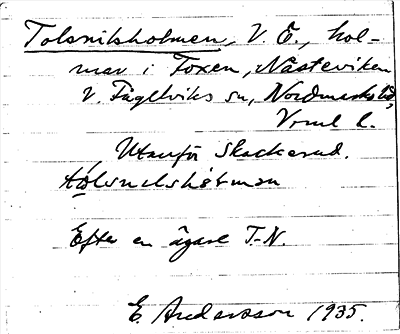 Tolsnilsholmen, V. Ö., hol-
mar i Foxen, Nästeviken
V. Fågelviks sn, Nordmarks hd,
Vrml l.
Utanför Skackerud.
Efter en ägare T-N.
E. Andersson 1935.